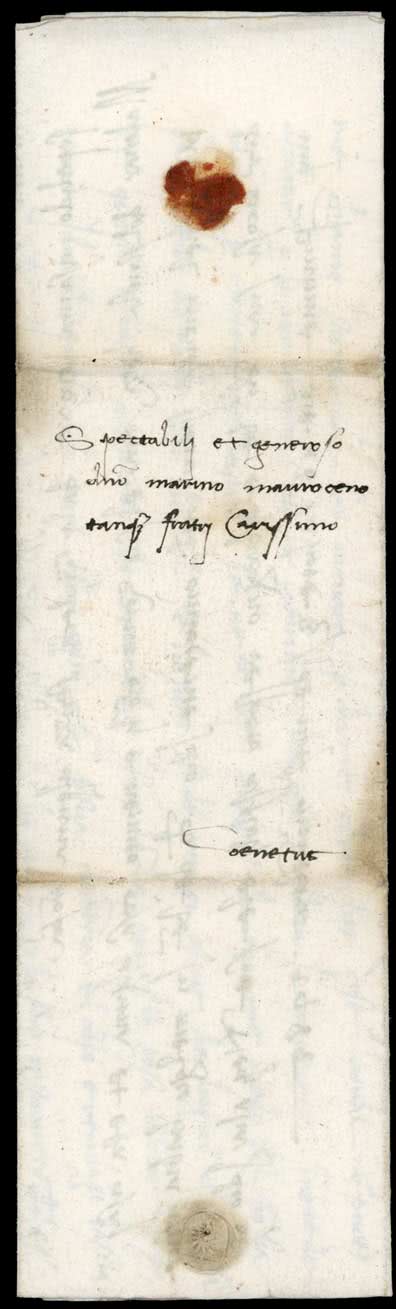 Spectabili et generoso
dnō marino mauroceno
tanqȝ fratri Carissimo
Venetiis